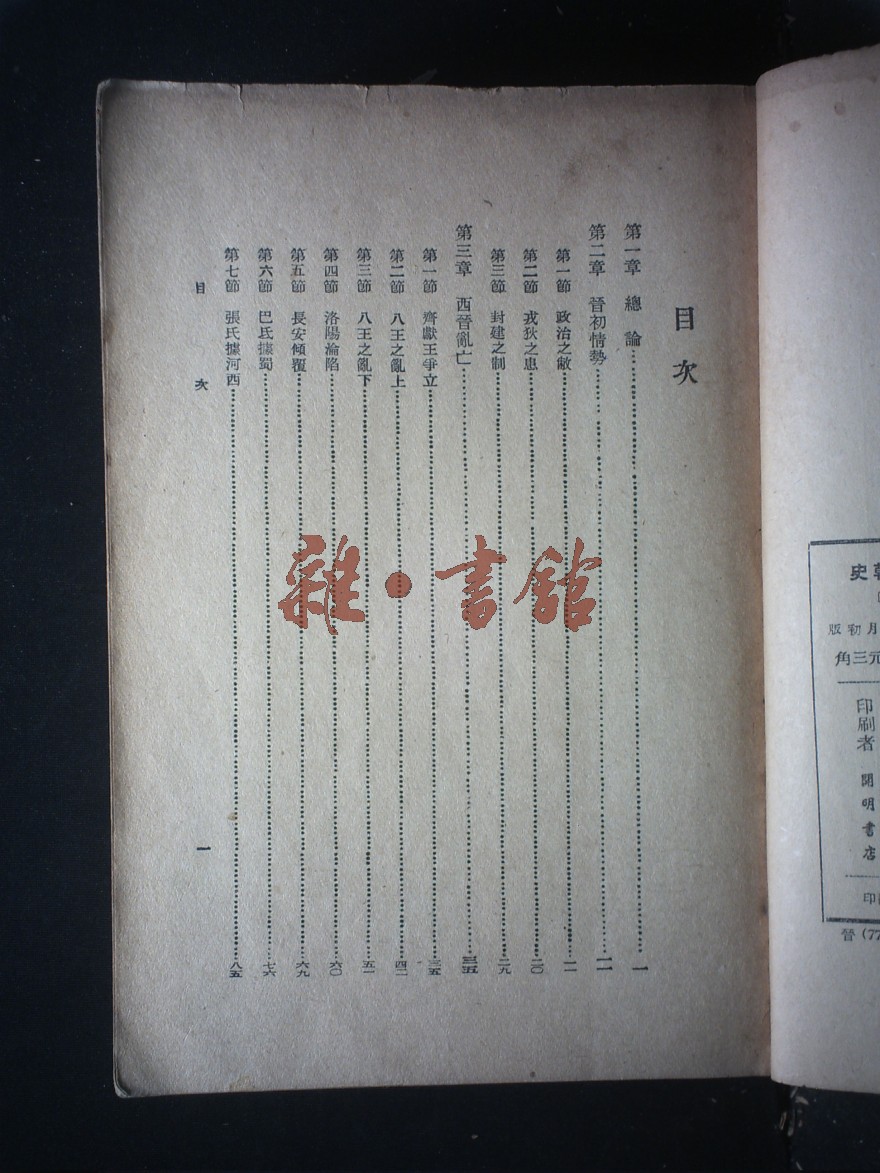 目次
第一章 總論 一
第二章 晉初情勢 一一
第一節 政治之敝 一一
第二節 戎狄之患 二〇
第三節 封建之制 二九
第三章 西晉亂亡 三五
第一節 齊獻王爭立 三五
第二節 八王之亂上 四二
第三節 八王之亂下 五一
第四節 洛陽淪陷 六〇
第五節 長安傾覆 六九
第六節 巴氐據蜀 七六
第七節 張氏據河西 八五
目次 一
雜·書館
史
月初版
元三角
印刷者 開明書店
印
晉(77